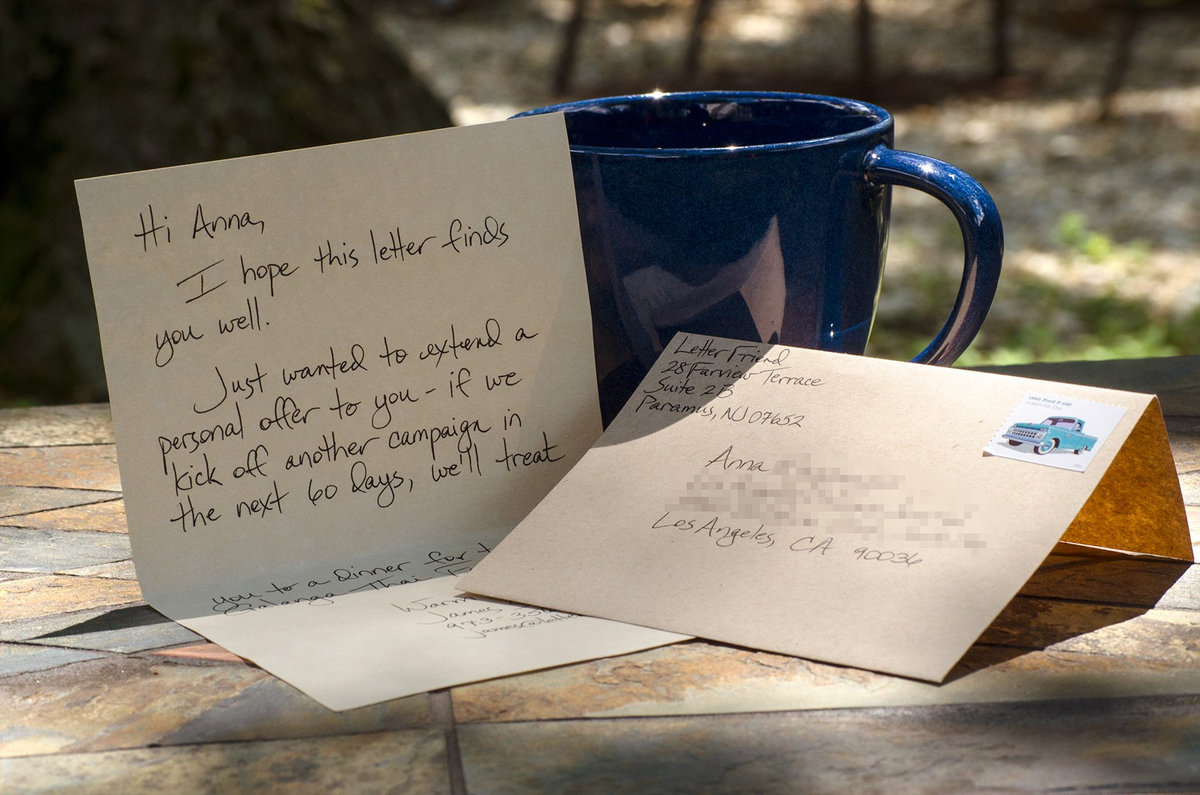 Hi Anna,
I hope this letter finds
you well.
Just wanted to extend a
personal offer to you - if we
kick off another campaign in
the next 60 days, we'll treat
you to a dinner for
Galanga Thai
James
973-
Letter Friend
28 Farview Terrace
Suite 2B
Paramus, NJ 07652
1965 Ford F-100
Anna
Los Angeles, CA 90036